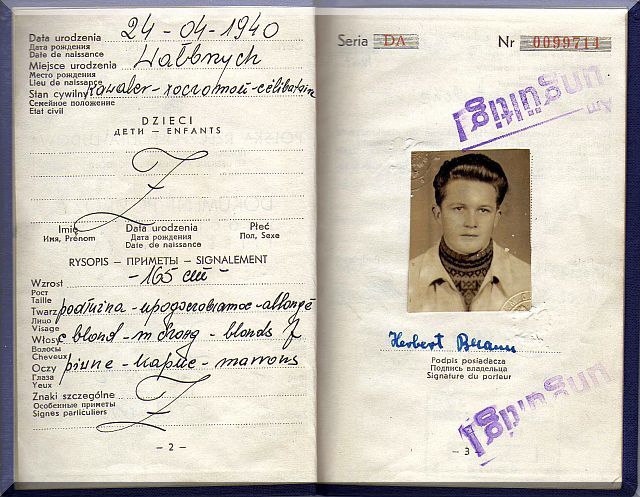 Data urodzenia 24-04-1940
Дата рождения
Date de naissance
Miejsce urodzenia Wałbrzych
Место рождения
Lieu de naissance
Stan cywilny kawaler - холостой - célibataire
Семейное положение
Etat civil
DZIECI
ДЕТИ — ENFANTS
Imię Data urodzenia Płeć
Имя, Prénom Дата рождения Пол, Sexe
Date de naissance
RYSOPIS — ПРИМЕТЫ — SIGNALEMENT
Wzrost - 165 cm -
Рост
Taille
Twarz podłużna - продолговатое - allongé
Лицо
Visage
Włosy c blond - blonds f
Волосы
Cheveux
Oczy piwne - карие - marrons
Глаза
Yeux
Znaki szczególne
Особенные приметы
Signes particuliers
— 2 —
Seria DA Nr 0099714
ungültig!
Herbert
Podpis posiadacza
Подпись владельца
Signature du porteur
— 3